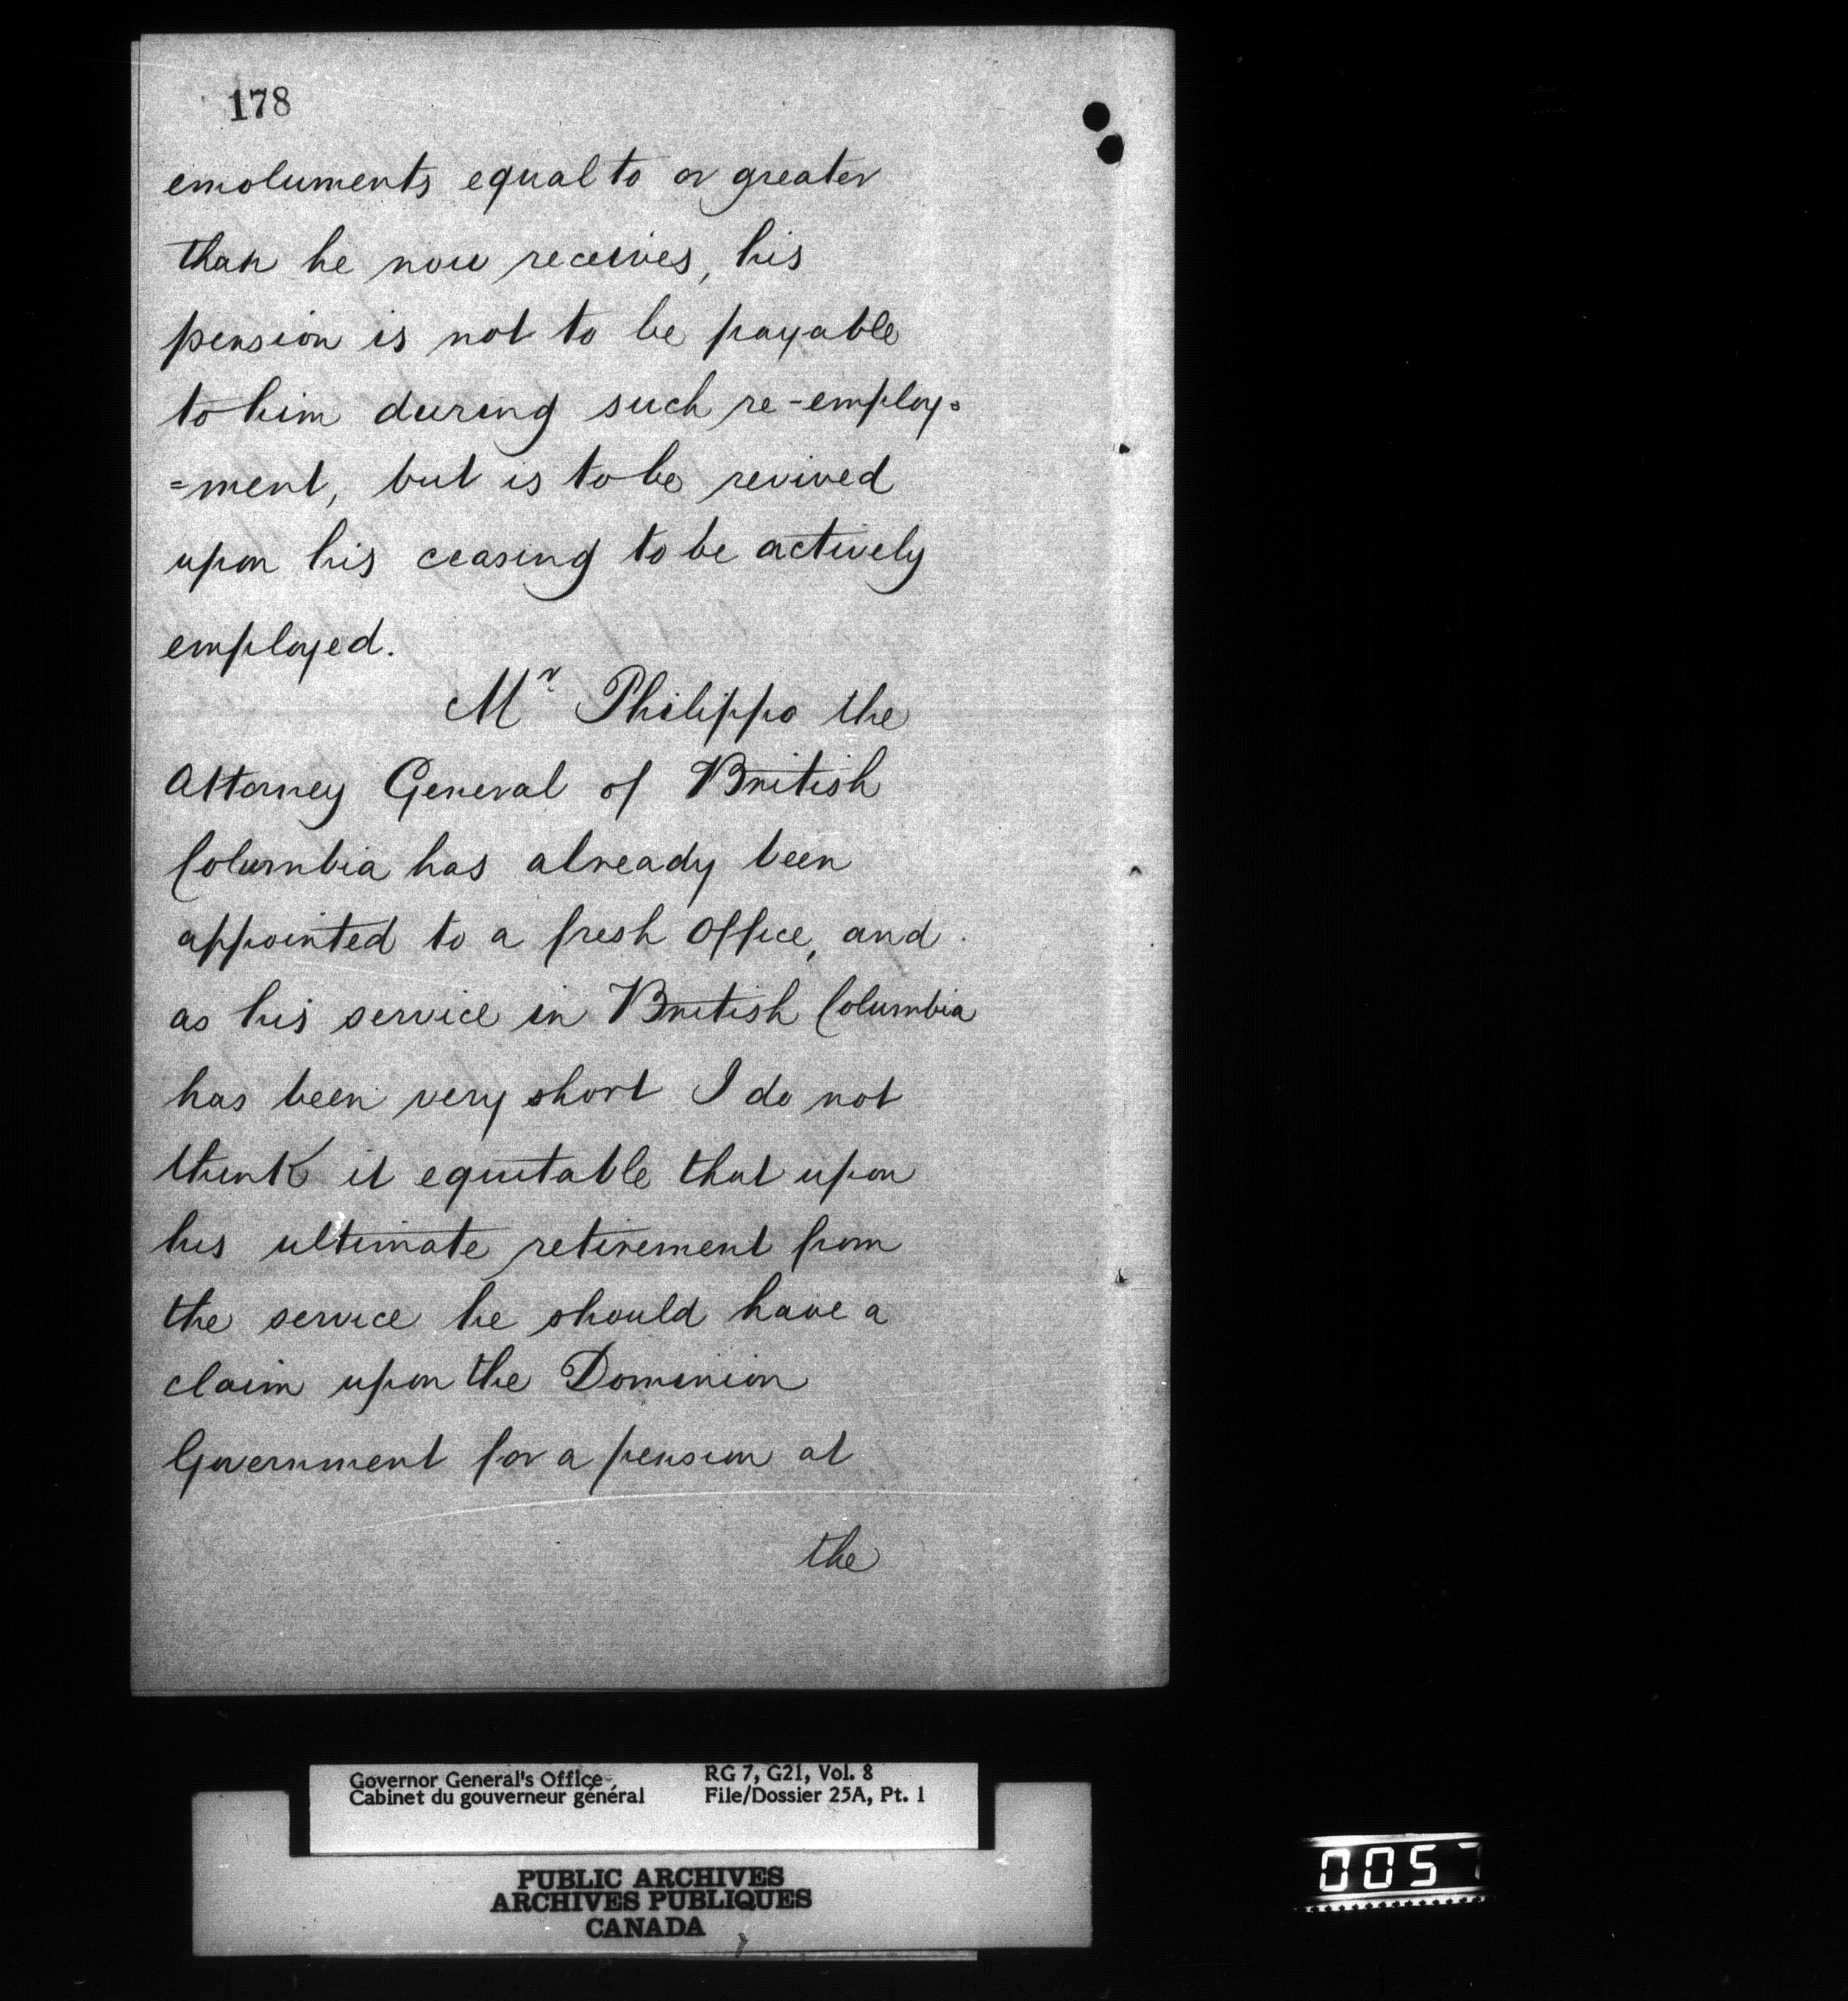 178
emoluments equal to or greater
than he now receives, his
pension is not to be payable
to him during such re-employ=
=ment, but is to be revived
upon his ceasing to be actively
employed.
Mr. Philippo the
Attorney General of British
Columbia has already been
appointed to a fresh Office, and
as his service in British Columbia
has been very short I do not
think it equitable that upon
his ultimate retirement from
the service he should have a
claim upon the Dominion
Government for a pension at
the
Governor General's Office RG 7, G21, Vol. 8
Cabinet du gouverneur général File/Dossier 25A, Pt. 1
PUBLIC ARCHIVES
ARCHIVES PUBLIQUES
CANADA
0057